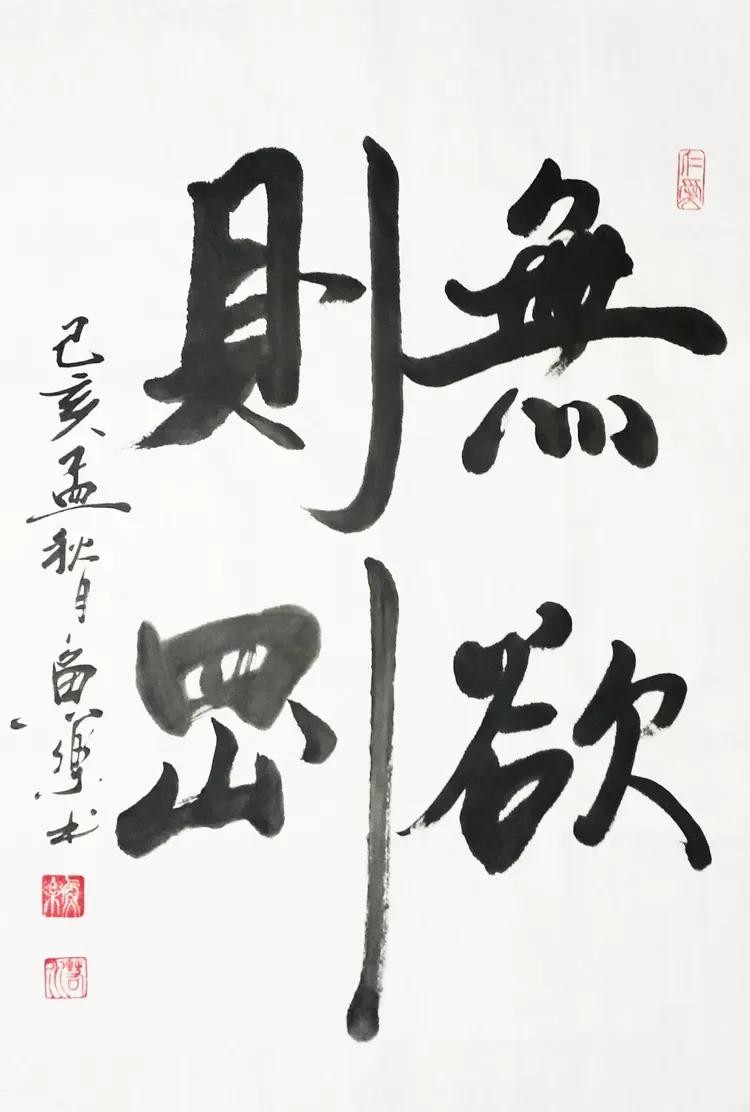 無欲
則剛
己亥孟秋月